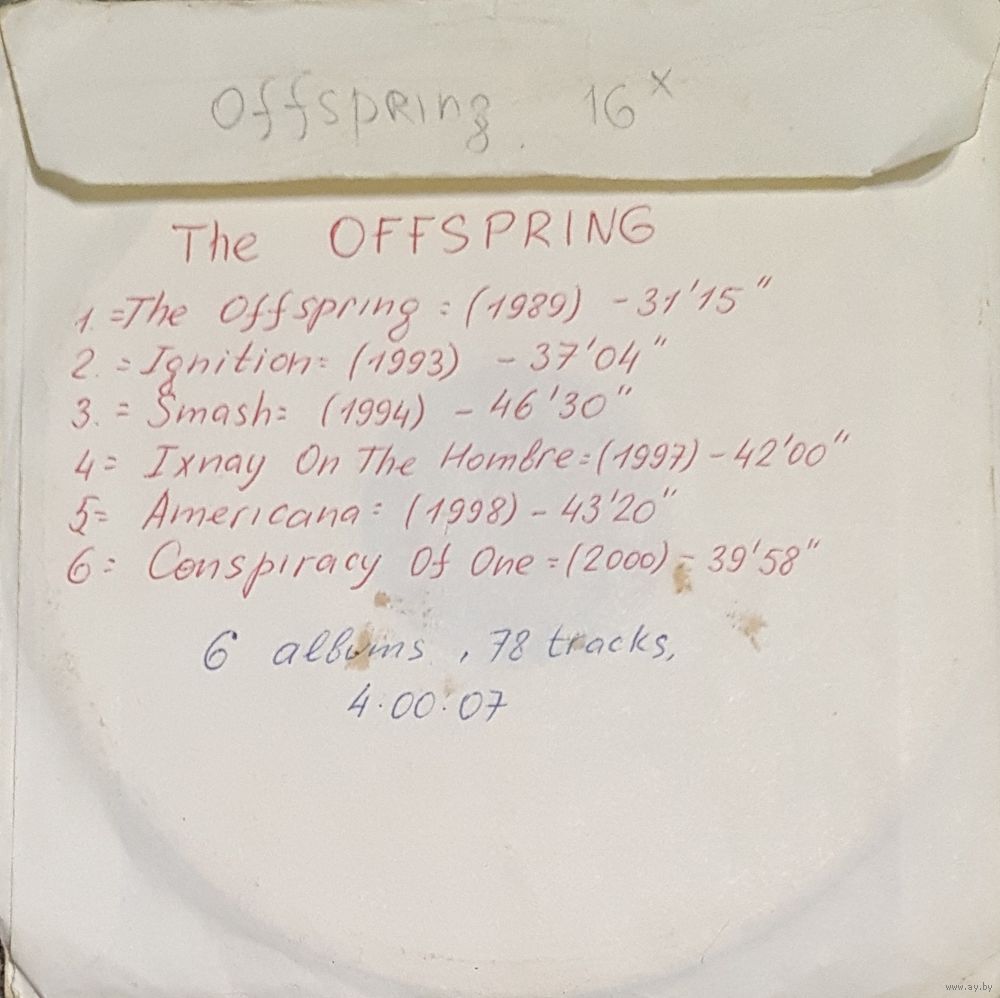 Offspring 16ˣ
The OFFSPRING
1. = The Offspring = (1989) - 31'15"
2. = Ignition = (1993) - 37'04"
3. = Smash = (1994) - 46'30"
4 = Ixnay On The Hombre = (1997) - 42'00"
5 = Americana = (1998) - 43'20"
6 = Conspiracy Of One = (2000) - 39'58"
6 albums, 78 tracks,
4:00:07
www.ay.by